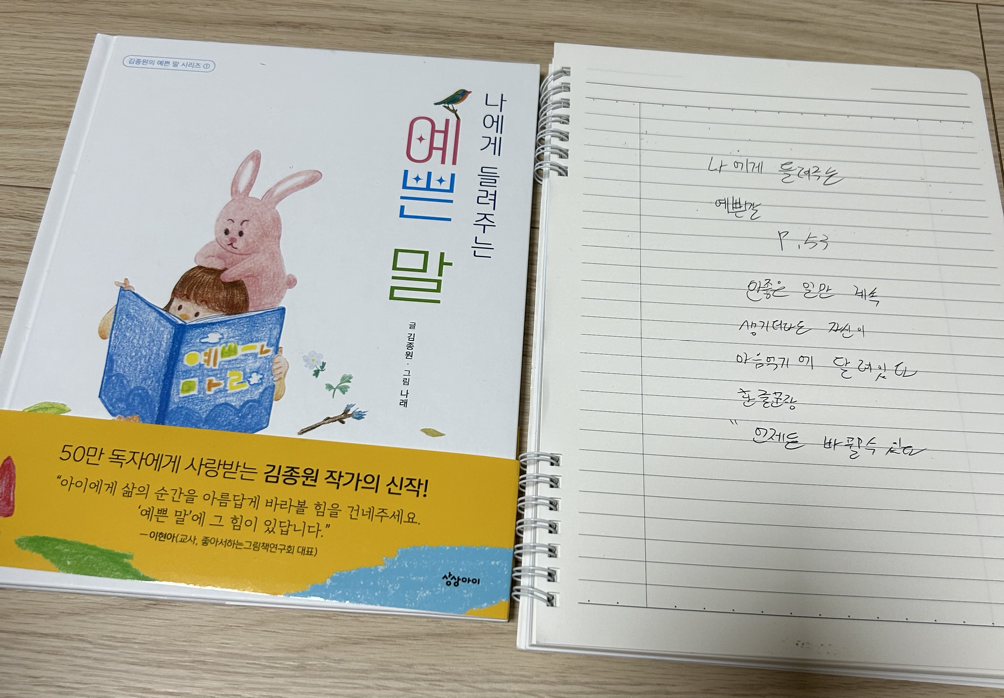 김종원의 예쁜 말 시리즈 ①
나에게 들려주는
예쁜 말
글 김종원 · 그림 나래
예쁜
말
50만 독자에게 사랑받는 김종원 작가의 신작!
“아이에게 삶의 순간을 아름답게 바라볼 힘을 건네주세요.
‘예쁜 말’에 그 힘이 있답니다.”
—이현아(교사, 좋아서하는그림책연구회 대표)
상상아이
나에게 들려주는
예쁜말
P.53
안좋은 일만 계속
생기더라도 자신의
마음먹기에 달려있다
한글문장
" 언제든 바꿀수 있다